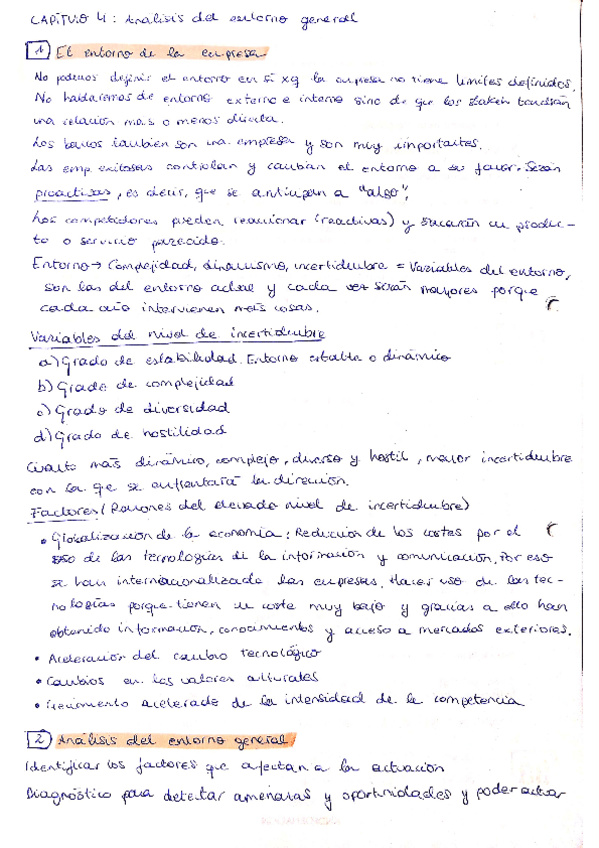 CAPÍTULO 4: Análisis del entorno general
1 El entorno de la empresa
No podemos definir el entorno en sí xq la empresa no tiene límites definidos.
No hablaremos de entorno externo e interno sino de que los staken tendrán
una relación más o menos directa.
Los bancos también son una empresa y son muy importantes.
Las emp exitosas controlan y cambian el entorno a su favor. Serán
proactivas, es decir, que se anticipan a "algo".
Los competidores pueden reaccionar (reactivas) y sacarán un produc-
to o servicio parecido.
Entorno → Complejidad, dinamismo, incertidumbre = Variables del entorno,
son las del entorno actual y cada vez serán mayores porque
cada año intervienen más cosas.
Variables del nivel de incertidumbre
a) Grado de estabilidad. Entorno estable o dinámico
b) Grado de complejidad
c) Grado de diversidad
d) Grado de hostilidad
Cuanto más dinámico, complejo, diverso y hostil, mayor incertidumbre
con la que se enfrentará la dirección.
Factores (Razones del elevado nivel de incertidumbre)
• Globalización de la economía: Reducción de los costes por el
uso de las tecnologías de la información y comunicación. Por eso
se han internacionalizado las empresas. Hacer uso de las tec-
nologías porque tienen un coste muy bajo y gracias a ello han
obtenido información, conocimientos y acceso a mercados exteriores.
• Aceleración del cambio tecnológico
• Cambios en los valores culturales
• Crecimiento acelerado de la intensidad de la competencia
2 Análisis del entorno general
Identificar los factores que afectan a la actuación
Diagnóstico para detectar amenazas y oportunidades y poder actuar